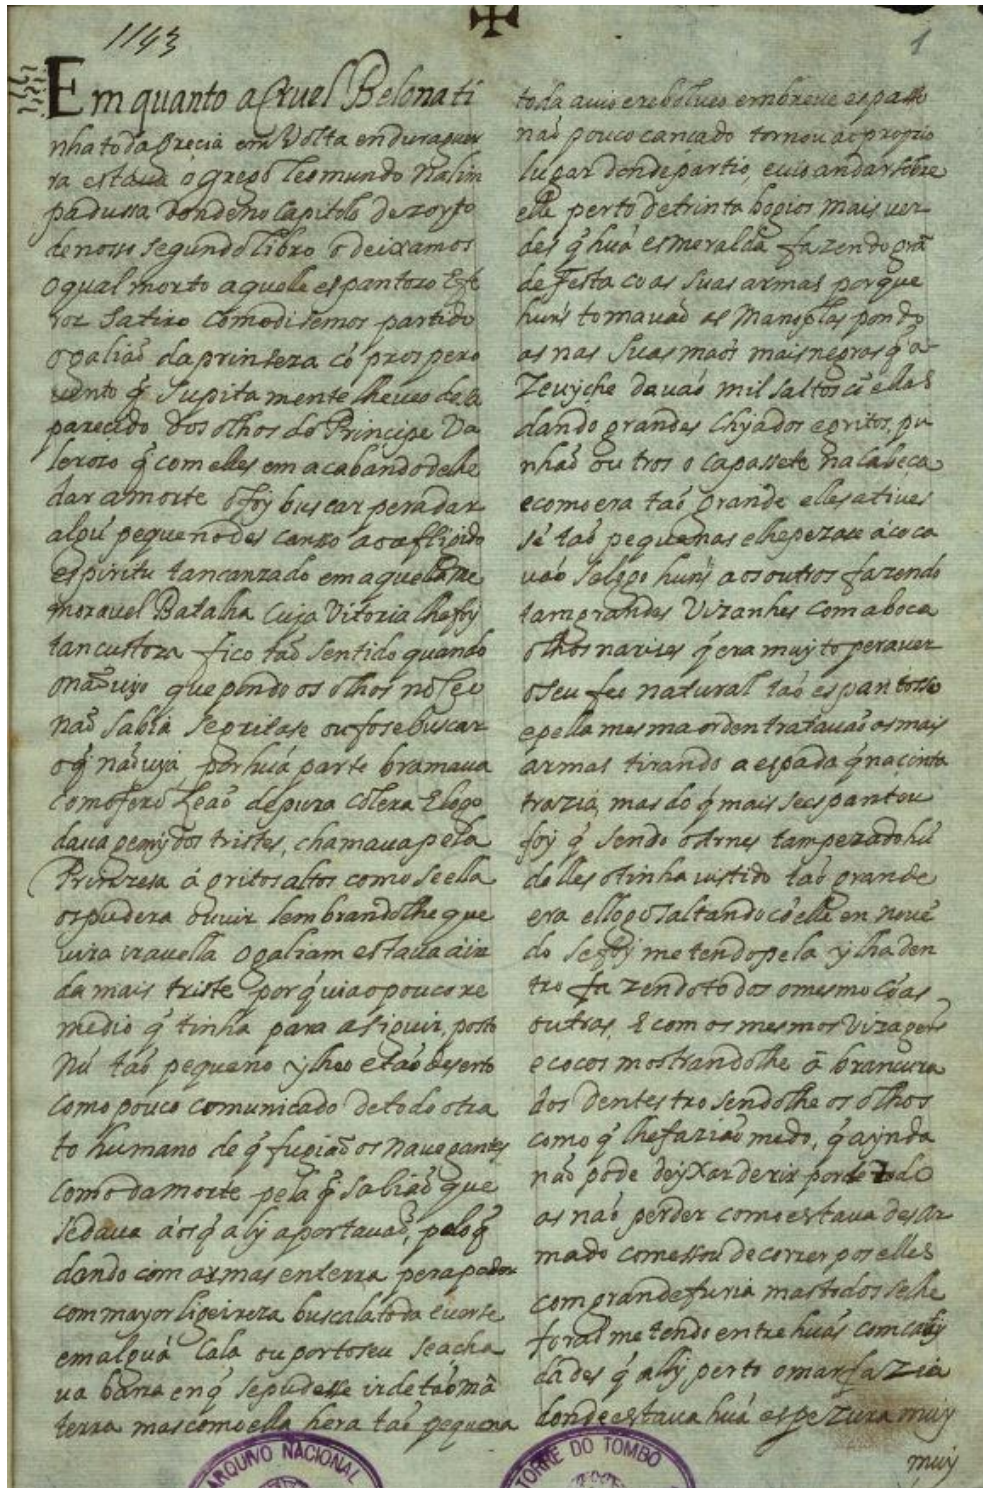 1143
1
Em quanto a Cruel Belona ti
nha toda Grecia em Volta en dura guer
ra estaua o grego Leomundo Na lim
padussa donde no Capitolo dezoyto
de nosso segundo libro o deixamos
O qual morto aquelle espantozo E fe
roz Satiro como disemos partido
o galiaõ da prinseza có prospero
uento q̃ supitamente lhe ueo desa
parecido dos olhos do Principe Va
lerozo q̃ com elles em acabando de lhe
dar a morte o foy buscar pera dar
algũ pequeno descanso ao afligido
espiritu tan canzado em aquella me
moravel Batalha Cuja Vitoria lhe foy
tan custoza fico taõ sentido quando
o naõ uyo que pondo os olhos no Ceo
naõ sabia se gritase ou fose buscar
o q̃ naõ uya, por huá parte bramaua
como fero Leaõ de pura colera E logo
daua gemydos tristes, chamaua pela
Prinzesa á gritos altos como se ella
os pudera ouuir lembrandolhe que
uira
o galiam estaua ain
da mais triste por q̃ uia o pouco re
medio q̃ tinha para a siguir, posto
Nũ taõ pequeno ylheo e taõ deserto
como pouco comunicado de todo o tra
to humano de q̃ fugiaõ os nauegantes
como da morte pela q̃ sabiaõ que
se daua áos q̃ aly aportauaõ, pelo q̃
dando com as armas en terra pera poder
com mayor ligeireza buscala toda e uer se
em alguá Cala ou porto seu se acha
ua barca en q̃ se pudesse ir de taõ má
terra mas como ella hera taõ pequena
toda a uio e rebolueo em breue espasso
naõ pouco cancado tornou ao proprio
lugar donde partio, e uio andar sobre
elle perto de trinta bogios mais uer
des q̃ huá esmeralda fazendo grã
de Festa co as suas armas porque
huns tomauaõ as Manoplas pondo
as nas suas maõs mais negras q̃ a
Zeuyche dauaõ mil saltos cõ ellas
dando grandes chyados e gritos, pu
nhaõ outros o capassete na cabeca
e como era taõ grande e elles a tiues
sé taõ pequenas e lhe pezaua
uaõ se logo huns aos outros fazendo
tam grandes Vizanhes com a boca
olhos narizes q̃ era muyto pera uer
o seu feo natural taõ espantosso
e pella mesma orden tratauaõ as mais
armas tirando a espada q̃ na cinta
trazia, mas do q̃ mais se espantou
foy q̃ sendo o Arnes tam pezado hũ
delles o tinha uistido taõ grande
era e logo saltando cõ elle en
do se foy metendo pela ylha den
tro fazendo todos o mesmo cõ as
outras, E com os mesmos Vizagens
e cocos mostrandolhe a brancura
dos dentes trosendolhe os olhos
como q̃ lhe faziaõ medo, q̃ aynda
naõ pode deyxar de rir por de todo
as naõ perder como estaua desar
mado comessou de correr pos elles
com grande furia mas todos se lhe
foraõ metendo entre huás concaui
dades q̃ aly perto o mar fazia
donde estaua huá espezura muy
muy
ARQUIVO NACIONAL
TORRE DO TOMBO